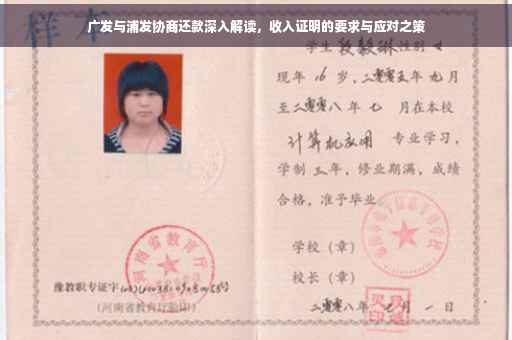 广发与浦发协商还款深入解读，收入证明的要求与应对之策
样本
学生段毅琳性别女
现年16岁，二零零五年九月
至二零零八年七月在本校
计算机应用专业学习，
学制三年，修业期满，成绩
合格，准予毕业。
学校（章）
校长（章）
二零零八年七月一日
河南省教育厅
豫教职专证字
（河南省教育厅验印）